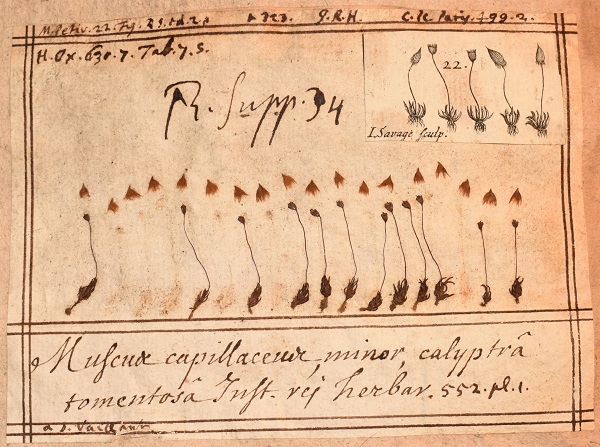 M. Petiv. 22. Fig. R. S. td. 2. p. 323. J. R. H. C. R. Parij. 199. 2.
H. Ox. 630. 7. Tab. 7. s.
R. Supp. 34
22.
I. Savage sculp.
Muscus capillaceus, minor, calyptrâ
tomentosâ Inst. rej herbar. 552. pl. 1.
a D. Vaillant